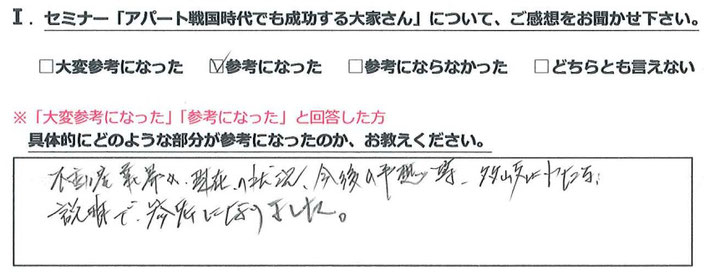 Ⅰ．セミナー「アパート戦国時代でも成功する大家さん」について、ご感想をお聞かせ下さい。
□大変参考になった ☑参考になった □参考にならなかった □どちらとも言えない
※「大変参考になった」「参考になった」と回答した方
具体的にどのような部分が参考になったのか、お教えください。
不動産業界の、現在の状況、今後の予想等、多岐にわたる
説明で、参考になりました。